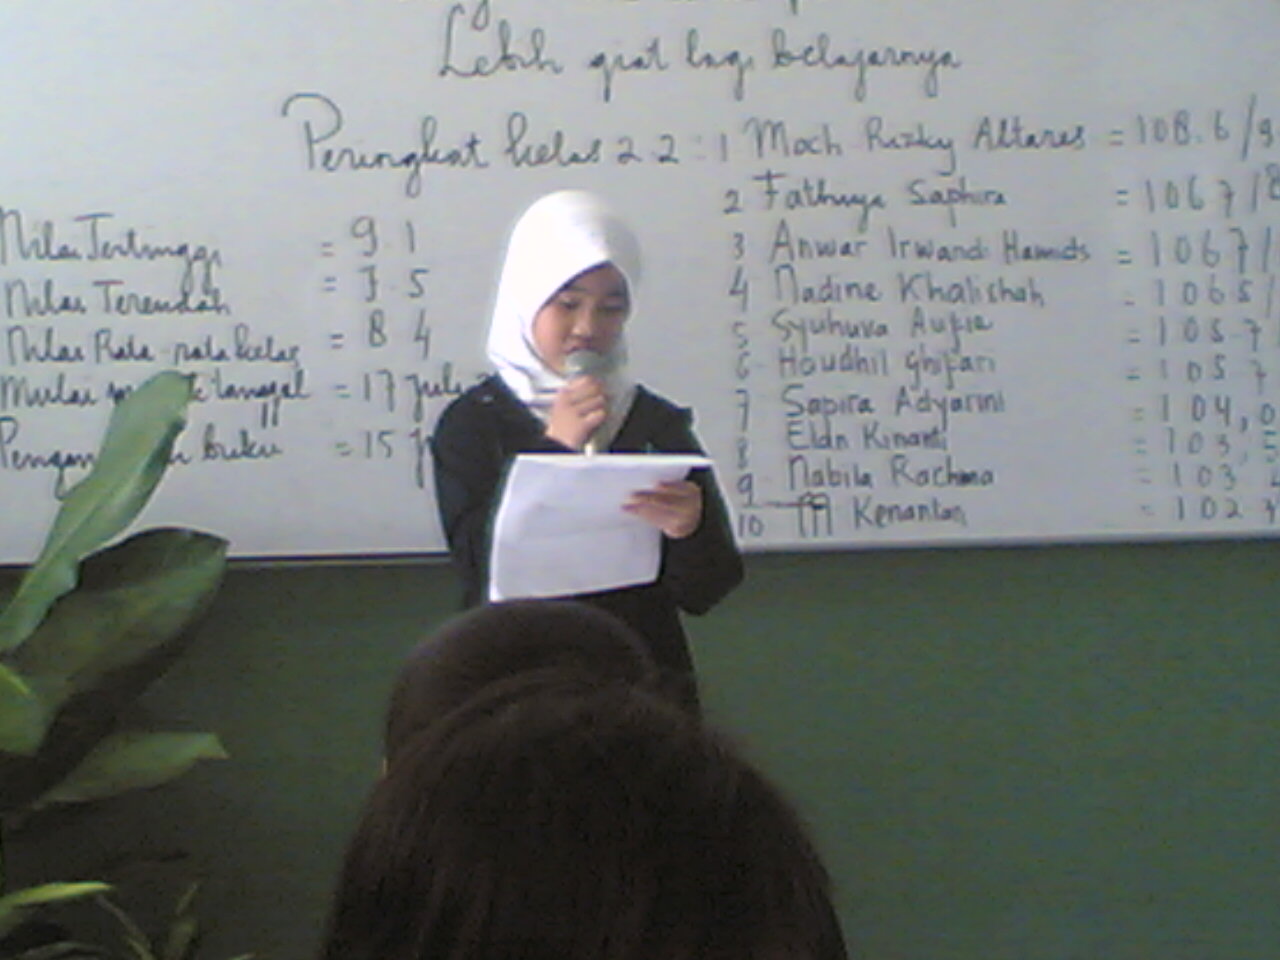 Lebih giat lagi belajarnya
Peringkat kelas 2.2 : 1 Moch Rizky Altares = 108.6 / 9
2 Fathuya Saphira = 106 7 / 8
3 Anwar Irwandi Hamids = 106 7 /
4 Nadine Khalishah = 106 5 /
5 Syuhuva Aufia = 105.7
6 Houdhil Ghifari = 105 7
7 Sapira Adyarini = 104,0
8 Eldn Kinanti = 103,5
9 Nabila Rachma = 103
10 M Kenantan = 102
Nilai Tertinggi = 9.1
Nilai Terendah = 7.5
Nilai Rata-rata kelas = 8 4
Mulai tanggal = 17 Juli
buku = 15